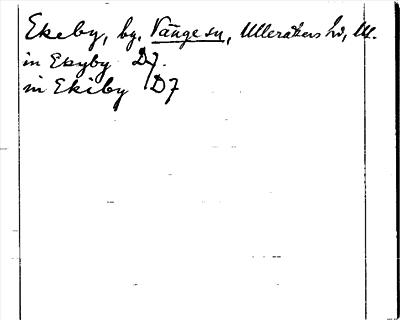 Ekeby, by, Vänge sn, Ulleråkers hd, Ul.
in Ekyby D7.
in Ekiby D7